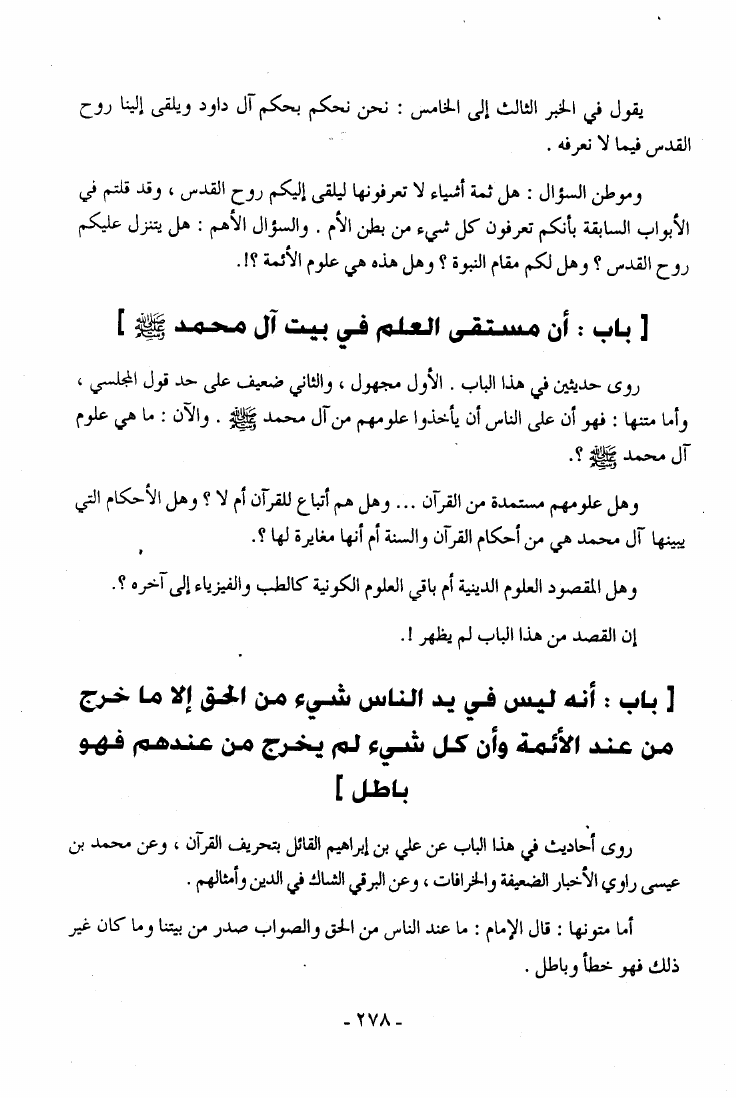 يقول في الخبر الثالث إلى الخامس : نحن نحكم بحكم آل داود ويلقى إلينا روح
القدس فيما لا نعرفه .
وموطن السؤال : هل ثمة أشياء لا تعرفونها ليلقى إليكم روح القدس ، وقد قلتم في
الأبواب السابقة بأنكم تعرفون كل شيء من بطن الأم . والسؤال الأهم : هل يتنزل عليكم
روح القدس ؟ وهل لكم مقام النبوة ؟ وهل هذه هي علوم الأئمة ؟!.
[ باب : أن مستقى العلم في بيت آل محمد ﷺ ]
روى حديثين في هذا الباب . الأول مجهول ، والثاني ضعيف على حد قول المجلسي ،
وأما متنها : فهو أن على الناس أن يأخذوا علومهم من آل محمد ﷺ . والآن : ما هي علوم
آل محمد ﷺ ؟.
وهل علومهم مستمدة من القرآن ... وهل هم أتباع للقرآن أم لا ؟ وهل الأحكام التي
يبينها آل محمد هي من أحكام القرآن والسنة أم أنها مغايرة لها ؟.
وهل المقصود العلوم الدينية أم باقي العلوم الكونية كالطب والفيزياء إلى آخره ؟.
إن القصد من هذا الباب لم يظهر !.
[ باب : أنه ليس في يد الناس شيء من الحق إلا ما خرج
من عند الأئمة وأن كل شيء لم يخرج من عندهم فهو
باطل ]
روى أحاديث في هذا الباب عن علي بن إبراهيم القائل بتحريف القرآن ، وعن محمد بن
عيسى راوي الأخبار الضعيفة والخرافات ، وعن البرقي الشاك في الدين وأمثالهم .
أما متونها : قال الإمام : ما عند الناس من الحق والصواب صدر من بيتنا وما كان غير
ذلك فهو خطأ وباطل .
- ٢٧٨ -